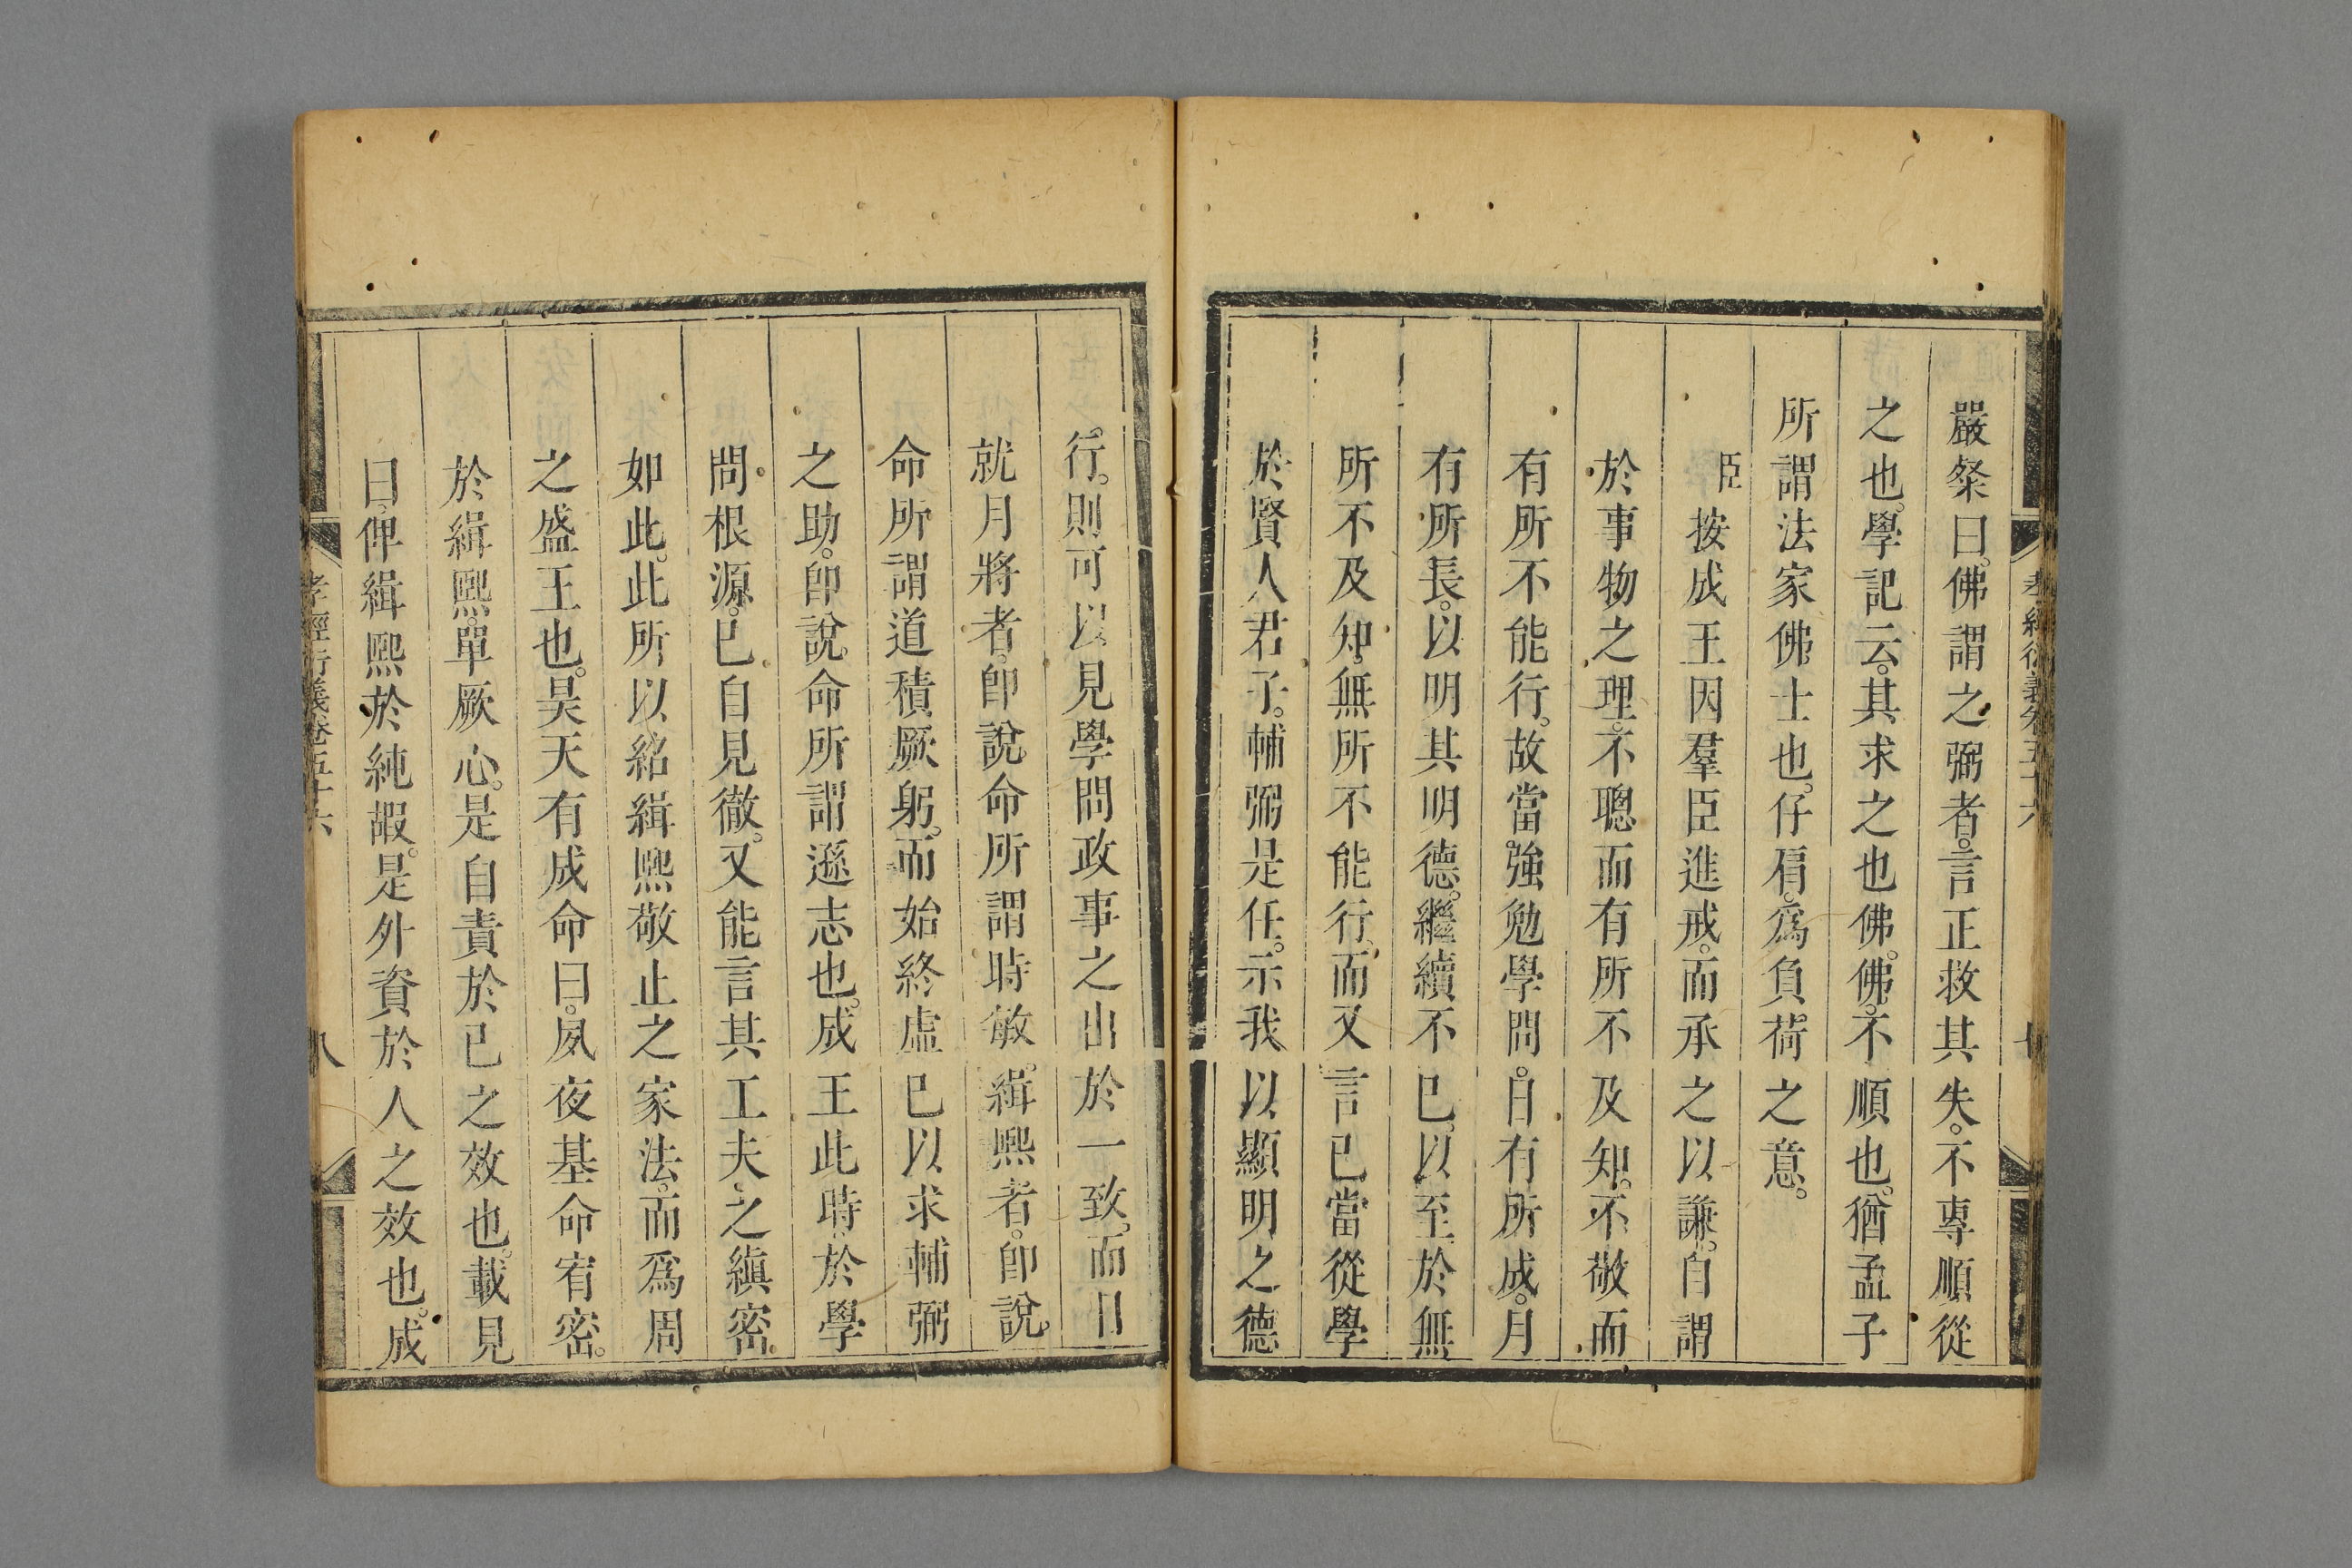 嚴粲曰。佛謂之弼者。言正救其失。不專順從
之也。學記云。其求之也佛。佛。不順也。猶孟子
所謂法家佛士也。仔肩。爲負荷之意。
臣按成王因羣臣進戒。而承之以謙。自謂
於事物之理。不聰而有所不及知。不敬而
有所不能行。故當強勉學問。日有所成。月
有所長。以明其明德。繼續不已。以至於無
所不及知。無所不能行。而又言已當從學
於賢人君子。輔弼是任。示我以顯明之德
孝經衍義卷五十六
七
行。則可以見學問政事之出於一致。而日
就月將者。卽說命所謂時敏。緝熙者。卽說
命所謂道積厥躬。而始終虛已以求輔弼
之助。卽說命所謂遜志也。成王此時於學
問根源。已自見徹。又能言其工夫之縝密
如此。此所以紹緝熙敬止之家法。而爲周
之盛王也。昊天有成命曰。夙夜基命宥密。
於緝熙。單厥心。是自責於已之效也。載見
曰。俾緝熙於純嘏。是外資於人之效也。成
孝經衍義卷五十六
八